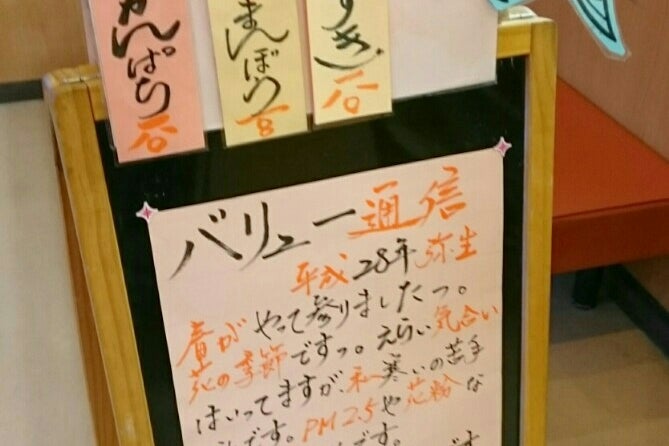 かんぱち一〇
まんぼう一８
すき
バリュー通信
平成28年弥生
春がやって参りましたっ。
花の季節ですっ。えらい気合い
はいってますが、私寒いの苦手
んです。PM2.5や花粉な
です。